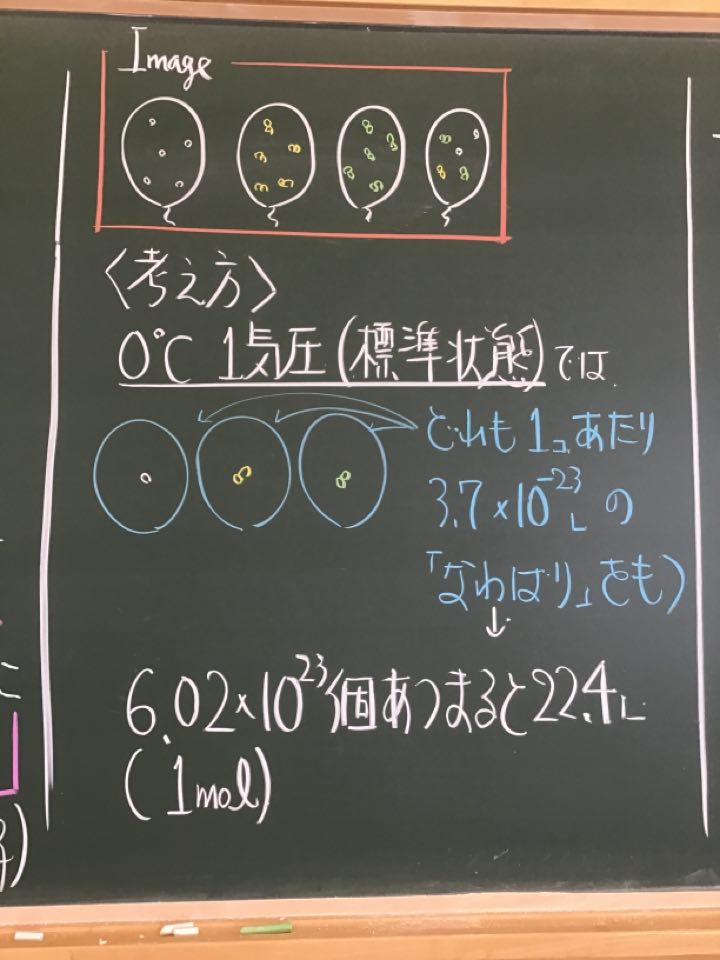 Image
〈考え方〉
0°C 1気圧(標準状態)では
どれも1コあたり
3.7×10⁻²³L の
「なわばり」をもつ
↓
6.02×10²³個あつまると22.4L
(1mol)